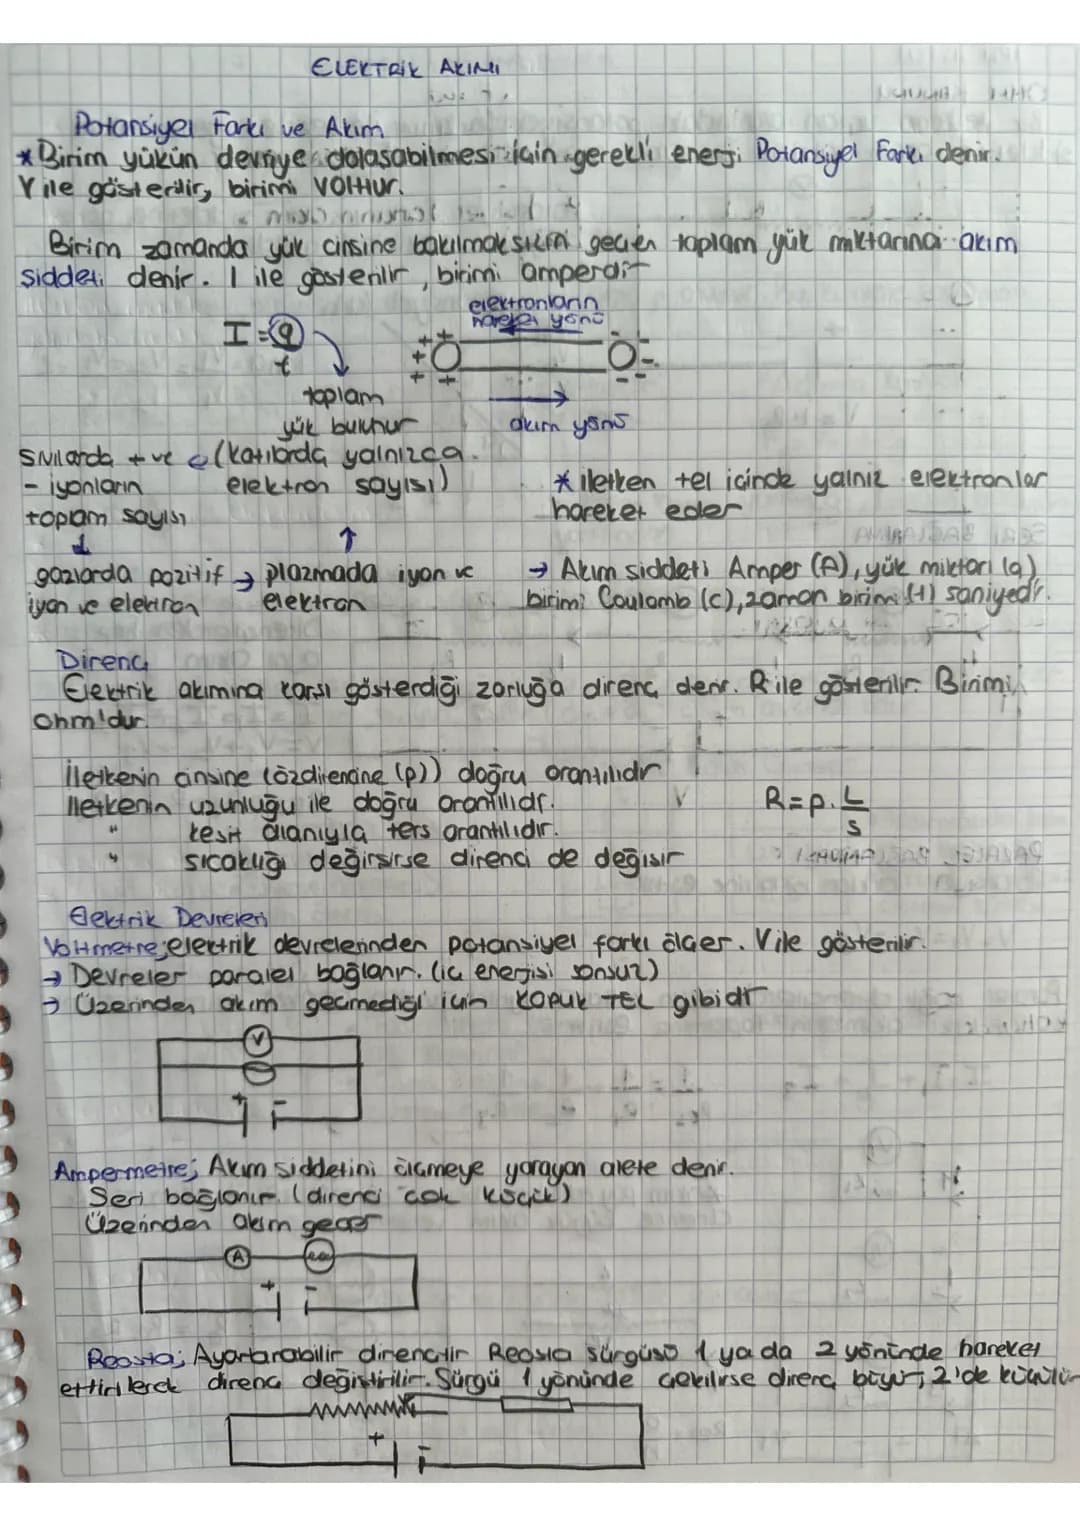 ELEKTRİK AKIMI
Potansiyel Farkı ve Akım
* Birim yükün devreye dolaşabilmesi için gerekli enerji Potansiyel Farkı denir.
V ile gösterilir, birimi volttur.
Birim zamanda yük cinsine bakılmaksızın geçen toplam yük miktarına akım
şiddeti denir. I ile gösterilir, birimi amperdir
elektronların
hareket yönü
I = q
t
toplam
yük bulunur
akım yönü
Sıvılarda + ve
- iyonların
toplam sayısı
(katılarda yalnızca
elektron sayısı)
* iletken tel içinde yalnız elektronlar
hareket eder
gazlarda pozitif
iyon ve elektron
→ plazmada iyon ve
elektron
→ Akım şiddeti Amper (A), yük miktarı (q)
birimi Coulomb (C), zaman birimi (t) saniyedir.
Direnç
Elektrik akımına karşı gösterdiği zorluğa direnç denir. R ile gösterilir. Birimi
ohm'dur.
İletkenin cinsine (özdirencine (p)) doğru orantılıdır
İletkenin uzunluğu ile doğru orantılıdır.
" kesit alanıyla ters orantılıdır.
" sıcaklığı değişirse direnci de değişir
R = p . L
S
Elektrik Devreleri
Voltmetre; elektrik devrelerinden potansiyel farkı ölçer. V ile gösterilir.
→ Devreler paralel bağlanır. (iç enerjisi sonsuz)
→ Üzerinden akım geçmediği için KOPUK TEL gibidir
V
+ -
Ampermetre; Akım şiddetini ölçmeye yarayan alete denir.
Seri bağlanır. (direnci çok küçük)
Üzerinden akım geçer
A
+ -
Reosta; Ayarlanabilir dirençtir Reosta sürgüsü 1 ya da 2 yönünde hareket
ettirilerek direnç değiştirilir. Sürgü 1 yönünde çekilirse direnç büyür, 2'de küçülür
+ -